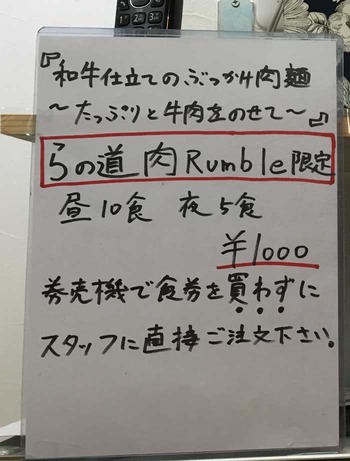 『和牛仕立てのぶっかけ肉麺
〜たっぷりと牛肉をのせて〜』
らの道 肉Rumble限定
昼10食 夜5食
¥1000
券売機で食券を買わずに
スタッフに直接ご注文下さい。